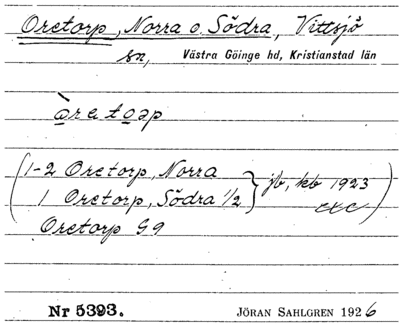 Oretorp, Norra o. Södra, Vittsjö
sn, Västra Göinge hd, Kristianstad län
òretɔap
(1-2 Oretorp, Norra
1 Oretorp, Södra 1/2 } jb, kb 1923
Oretorp G9
Nr 5393. JÖRAN SAHLGREN 1926